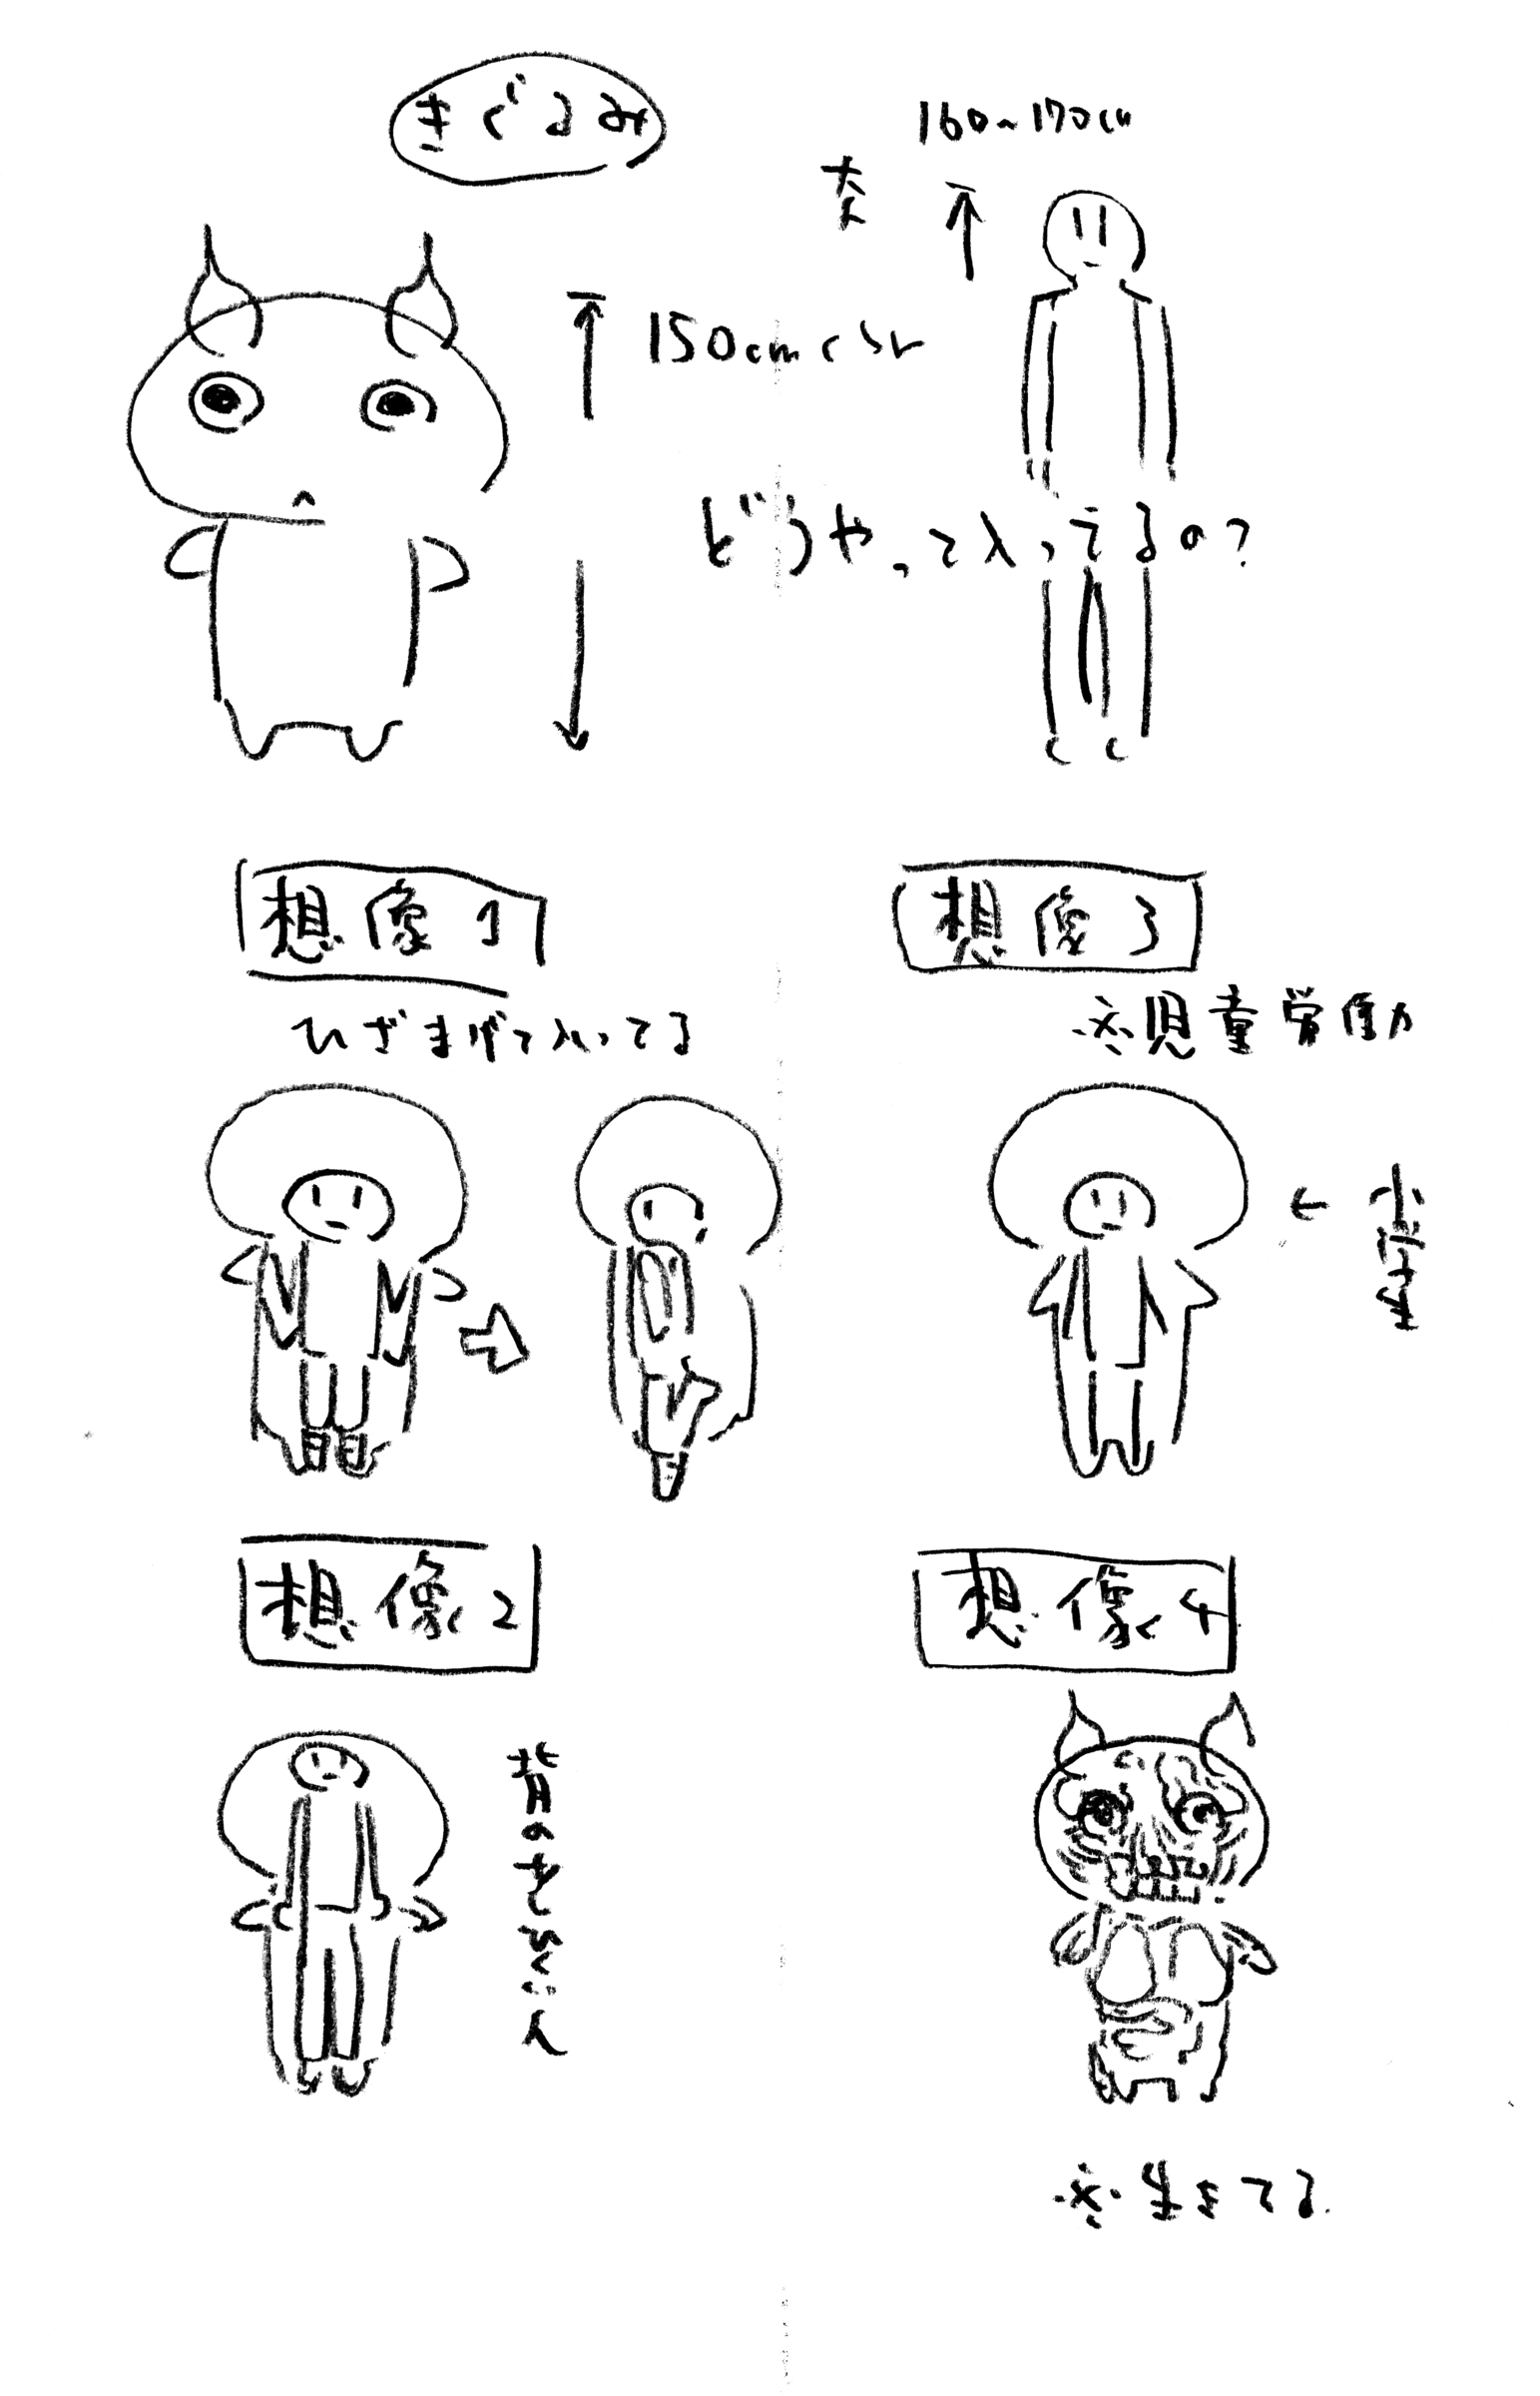 きぐるみ
160~170cm
大人
150cmくらい
どうやって入ってるの?
想像1
ひざまげて入ってる
想像3
※児童労働
←小学生
想像2
背のひくい人
想像4
※生きてる